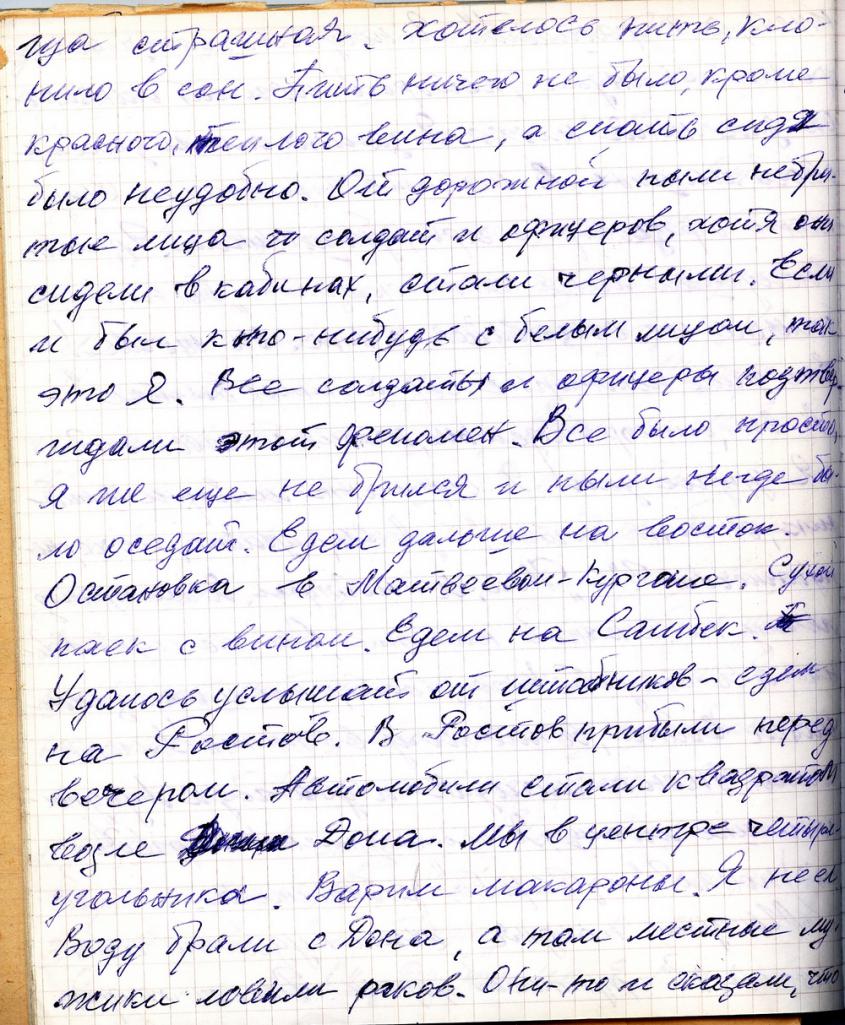 гда страшная. Хотелось пить, кло-
нило в сон. Пить ничего не было, кроме
красного, теплого вина, а спать сидя
было неудобно. От дорожной пыли небри-
тые лица и солдат и офицеров, хотя они
сидели в кабинах, стали черными. Если
и был кто-нибудь с белым лицом, так
это я. Все солдаты и офицеры подтвер-
ждали этот феномен. Все было просто,
я же еще не брился и пыли негде бы-
ло оседать. Едем дальше на восток.
Остановка в Матвеевом-Кургане. Сухой
паек с вином. Едем на Самбек.
Удалось услышать от штабников - едем
на Ростов. В Ростов прибыли перед
вечером. Автомобили стали квадратом
возле Дона. Мы в центре четырех-
угольника. Варим макароны. Я не ел.
Воду брали с Дона, а там местные му-
жики ловили раков. Они-то и сказали, что